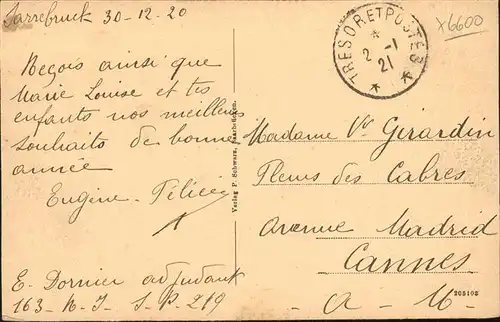 Sarrebruck 30-12-20
Reçois ainsi que
Marie Louise et tes
enfants nos meilleurs
souhaits de bonne
année
Eugène-Félicie
E. Dornier adjudant
163. R. I S. P. 219
Verlag P. Schwarz, Saarbrücken.
TRESOR ET POSTES
2 -1
21
x6600
Madame Vve Girardin
Fleurs des Cabres
avenue Madrid
Cannes
A. M.
205108